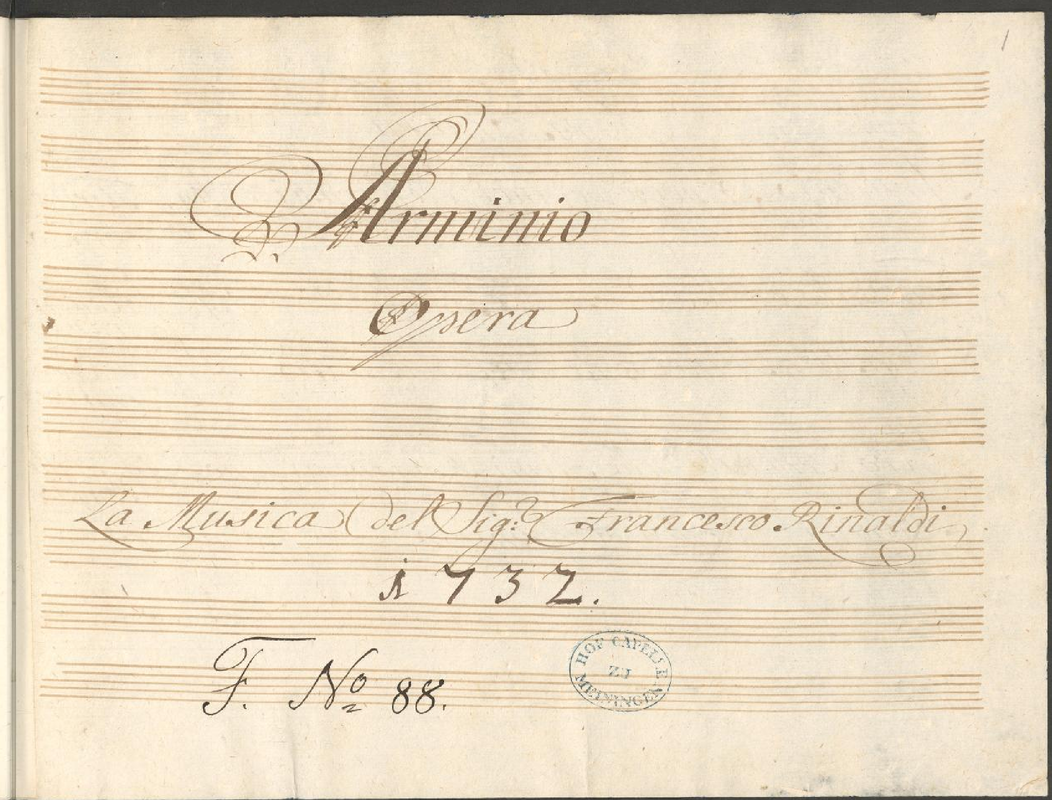 1
Arminio
Opera
La Musica del Sig.r Francesco Rinaldi
1732.
F. No 88.
HOF CAPELLE
ZU
MEININGEN